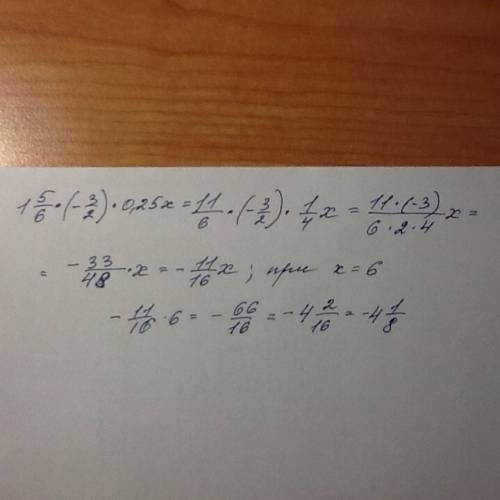 1 5/6 · (-3/2) · 0,25x = 11/6 · (-3/2) · 1/4 x = 11 · (-3)/6 · 2 · 4 x =
= -33/48 · x = -11/16 x ; при x = 6
-11/16 · 6 = -66/16 = -4 2/16 = -4 1/8